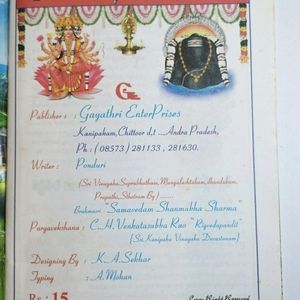 G
Publisher : Gayathri EnterPrises
Kanipakam, Chittoor d.t ....Andra Pradesh,
Ph : (08573) 281133, 281630.
Writer : Ponduri
(Sri Vinayaka
By)
Brahmasri "Samavedam Shanmukha Sharma"
Paryavekshana : C.H. Venkatasubba Rao "Rigvedapandit"
{Sri. Kanipaka Vinayaka Devastanam}
Designing By : K.A. Sekhar
Typing : A. Mohan
Rs : 15
Copy Right Reserved